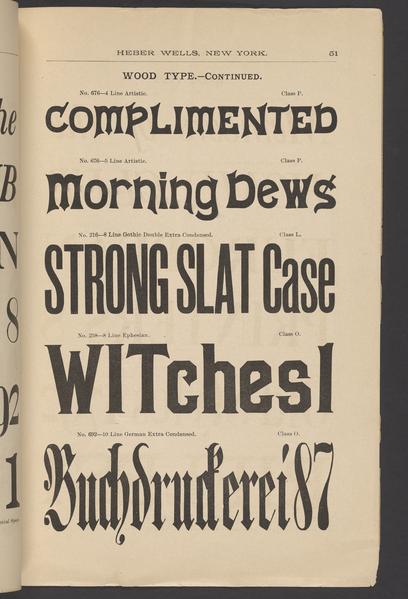 HEBER WELLS, NEW YORK. 51
WOOD TYPE.—CONTINUED.
No. 676—4 Line Artistic. Class P.
COMPLIMENTED
No. 676—5 Line Artistic. Class P.
Morning Dews
No. 216—8 Line Gothic Double Extra Condensed. Class L.
STRONG SLAT Case
No. 298—8 Line Ephesian. Class O.
WITches1
No. 692—10 Line German Extra Condensed. Class O.
Buchdruckerei 87
he
B
N
8
92
1